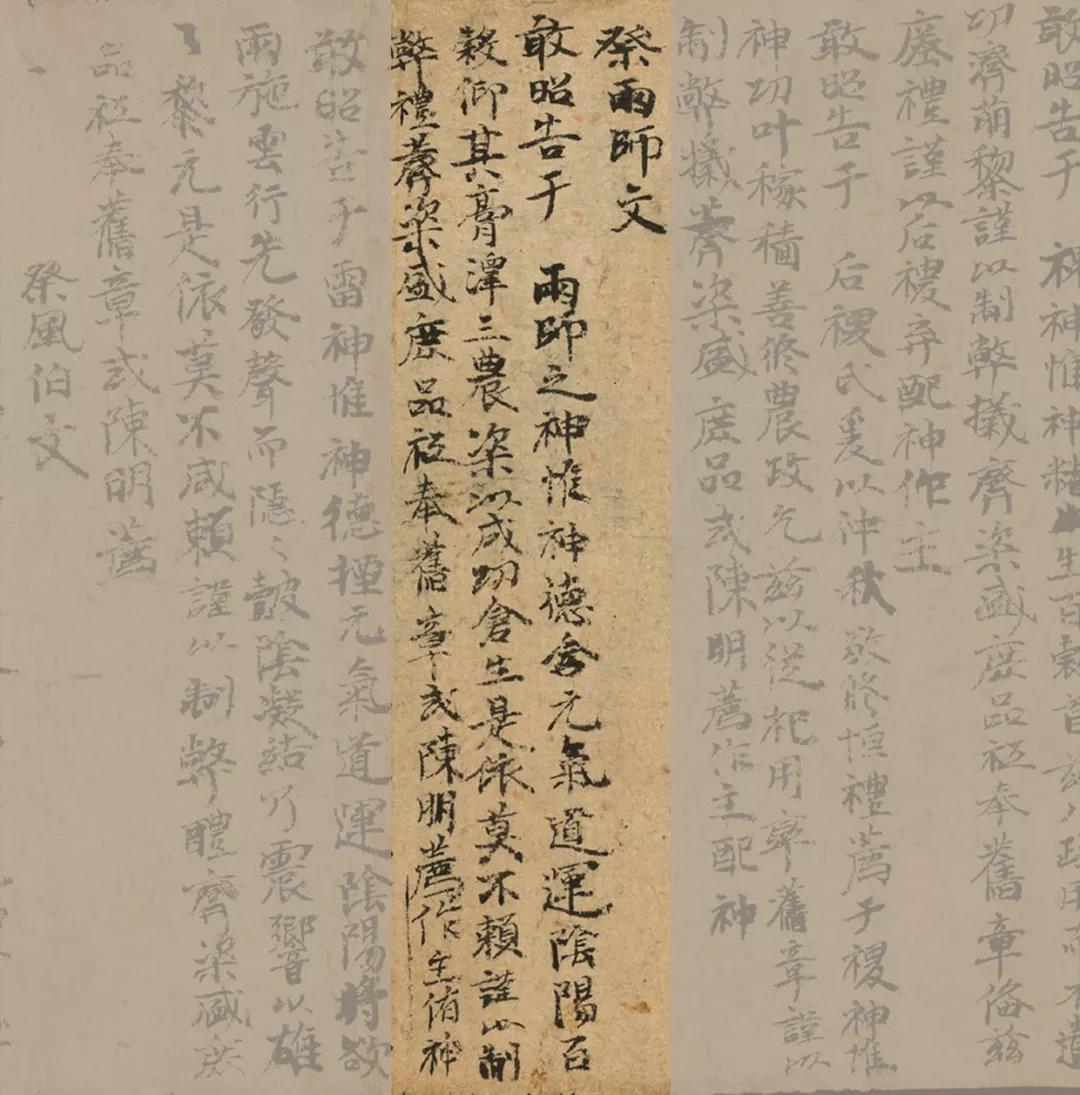 敢昭告于 神惟神精生百穀首茲八政用 不遺
功濟萌黎謹以制弊攕齊粢盛庶品祗奉舊章俻茲
瘞禮謹以后稷弃配神作主
敢昭告于 后稷氏爰以仲秋敬脩恒禮薦于稷神惟
神功叶稼穡善脩農政允茲以從祀用率舊章謹以
制弊攕薺粢盛庶品式陳明薦作主配神
祭雨師文
敢昭告于 雨師之神惟神德含元氣道運陰陽百
穀仰其膏澤三農粢以成功倉生是依莫不賴謹以制
弊禮薺粢盛庶品祗奉舊章式陳明薦作主侑神
敢昭告于雷神惟神德煙元氣道運陰陽將欲
雨施雲行先發聲而隱〻皷陰凝結乃震嚮以雄
黎元是依莫不咸賴謹以制弊醴齊粢盛庶
品祗奉舊章式陳明薦
祭風伯文